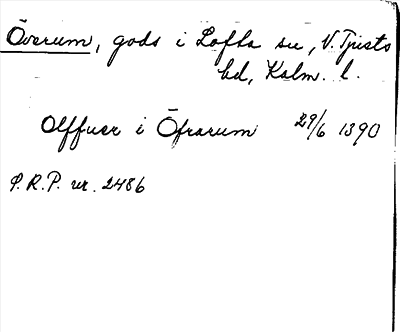 Överum, gods i Lofta sn, V. Tjusts
hd, Kalm. l.
Olffuer i Öfrarum 29/6 1390
P.R.P. nr. 2486